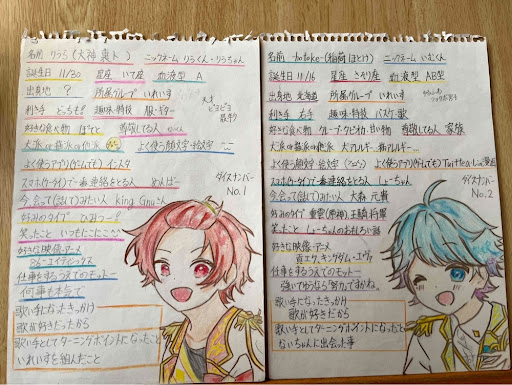 名前 りうら(大神 裏ト) ニックネーム りうくん・りうちゃん
誕生日 11/30 星座 いて座 血液型 A
出身地 ? 所属グループ いれいす
利き手 どっちも! 趣味・特技 服・ギター
好きな食べ物 ぽてと 尊敬してる人
犬派or猫派or他派 よく使う顔文字・絵文字
よく使うアプリ(ゲームでも) インスタ
スマホ(ケータイ)で一番連絡をとる人 めんばー
ダイスナンバー
No.1
今、会って(話して)みたい人 King Gnuさん
好みのタイプ ひみつー!
笑ったこと いつもにこにこ
好きな映像・アニメ
仕事をするうえでのモットー
何事も本気で
歌い手になったきっかけ
歌が好きだから
歌い手としてターニングポイントになったこと
いれいすを組んだこと
名前 -hotoke-(稲荷 ほとけ) ニックネーム いむくん
誕生日 11/16 星座 さそり座 血液型 AB型
出身地 北海道 所属グループ いれいす
利き手 右手 趣味・特技 バスケ・歌
好きな食べ物 グループ・タピオカ・甘い物 尊敬してる人 家族
犬派or猫派or他派 犬アレルギー・猫アレルギー
よく使う顔文字・絵文字
よく使うアプリ(ゲームでも) Twitter・LINE・漫画
スマホ(ケータイ)で一番連絡をとる人 しょーちゃん
ダイスナンバー
No.2
今、会って(話して)みたい人 大森 元貴
好みのタイプ 重雲(原神) 王騎将軍
笑ったこと しょーちゃんのおもろい話
好きな映像・アニメ
エヴァ、キングダム
仕事をするうえでのモットー
強いてゆうなら努力ですかね。
歌い手になったきっかけ
歌が好きだから
歌い手としてターニングポイントになったこと
ないちゃんに出会った事